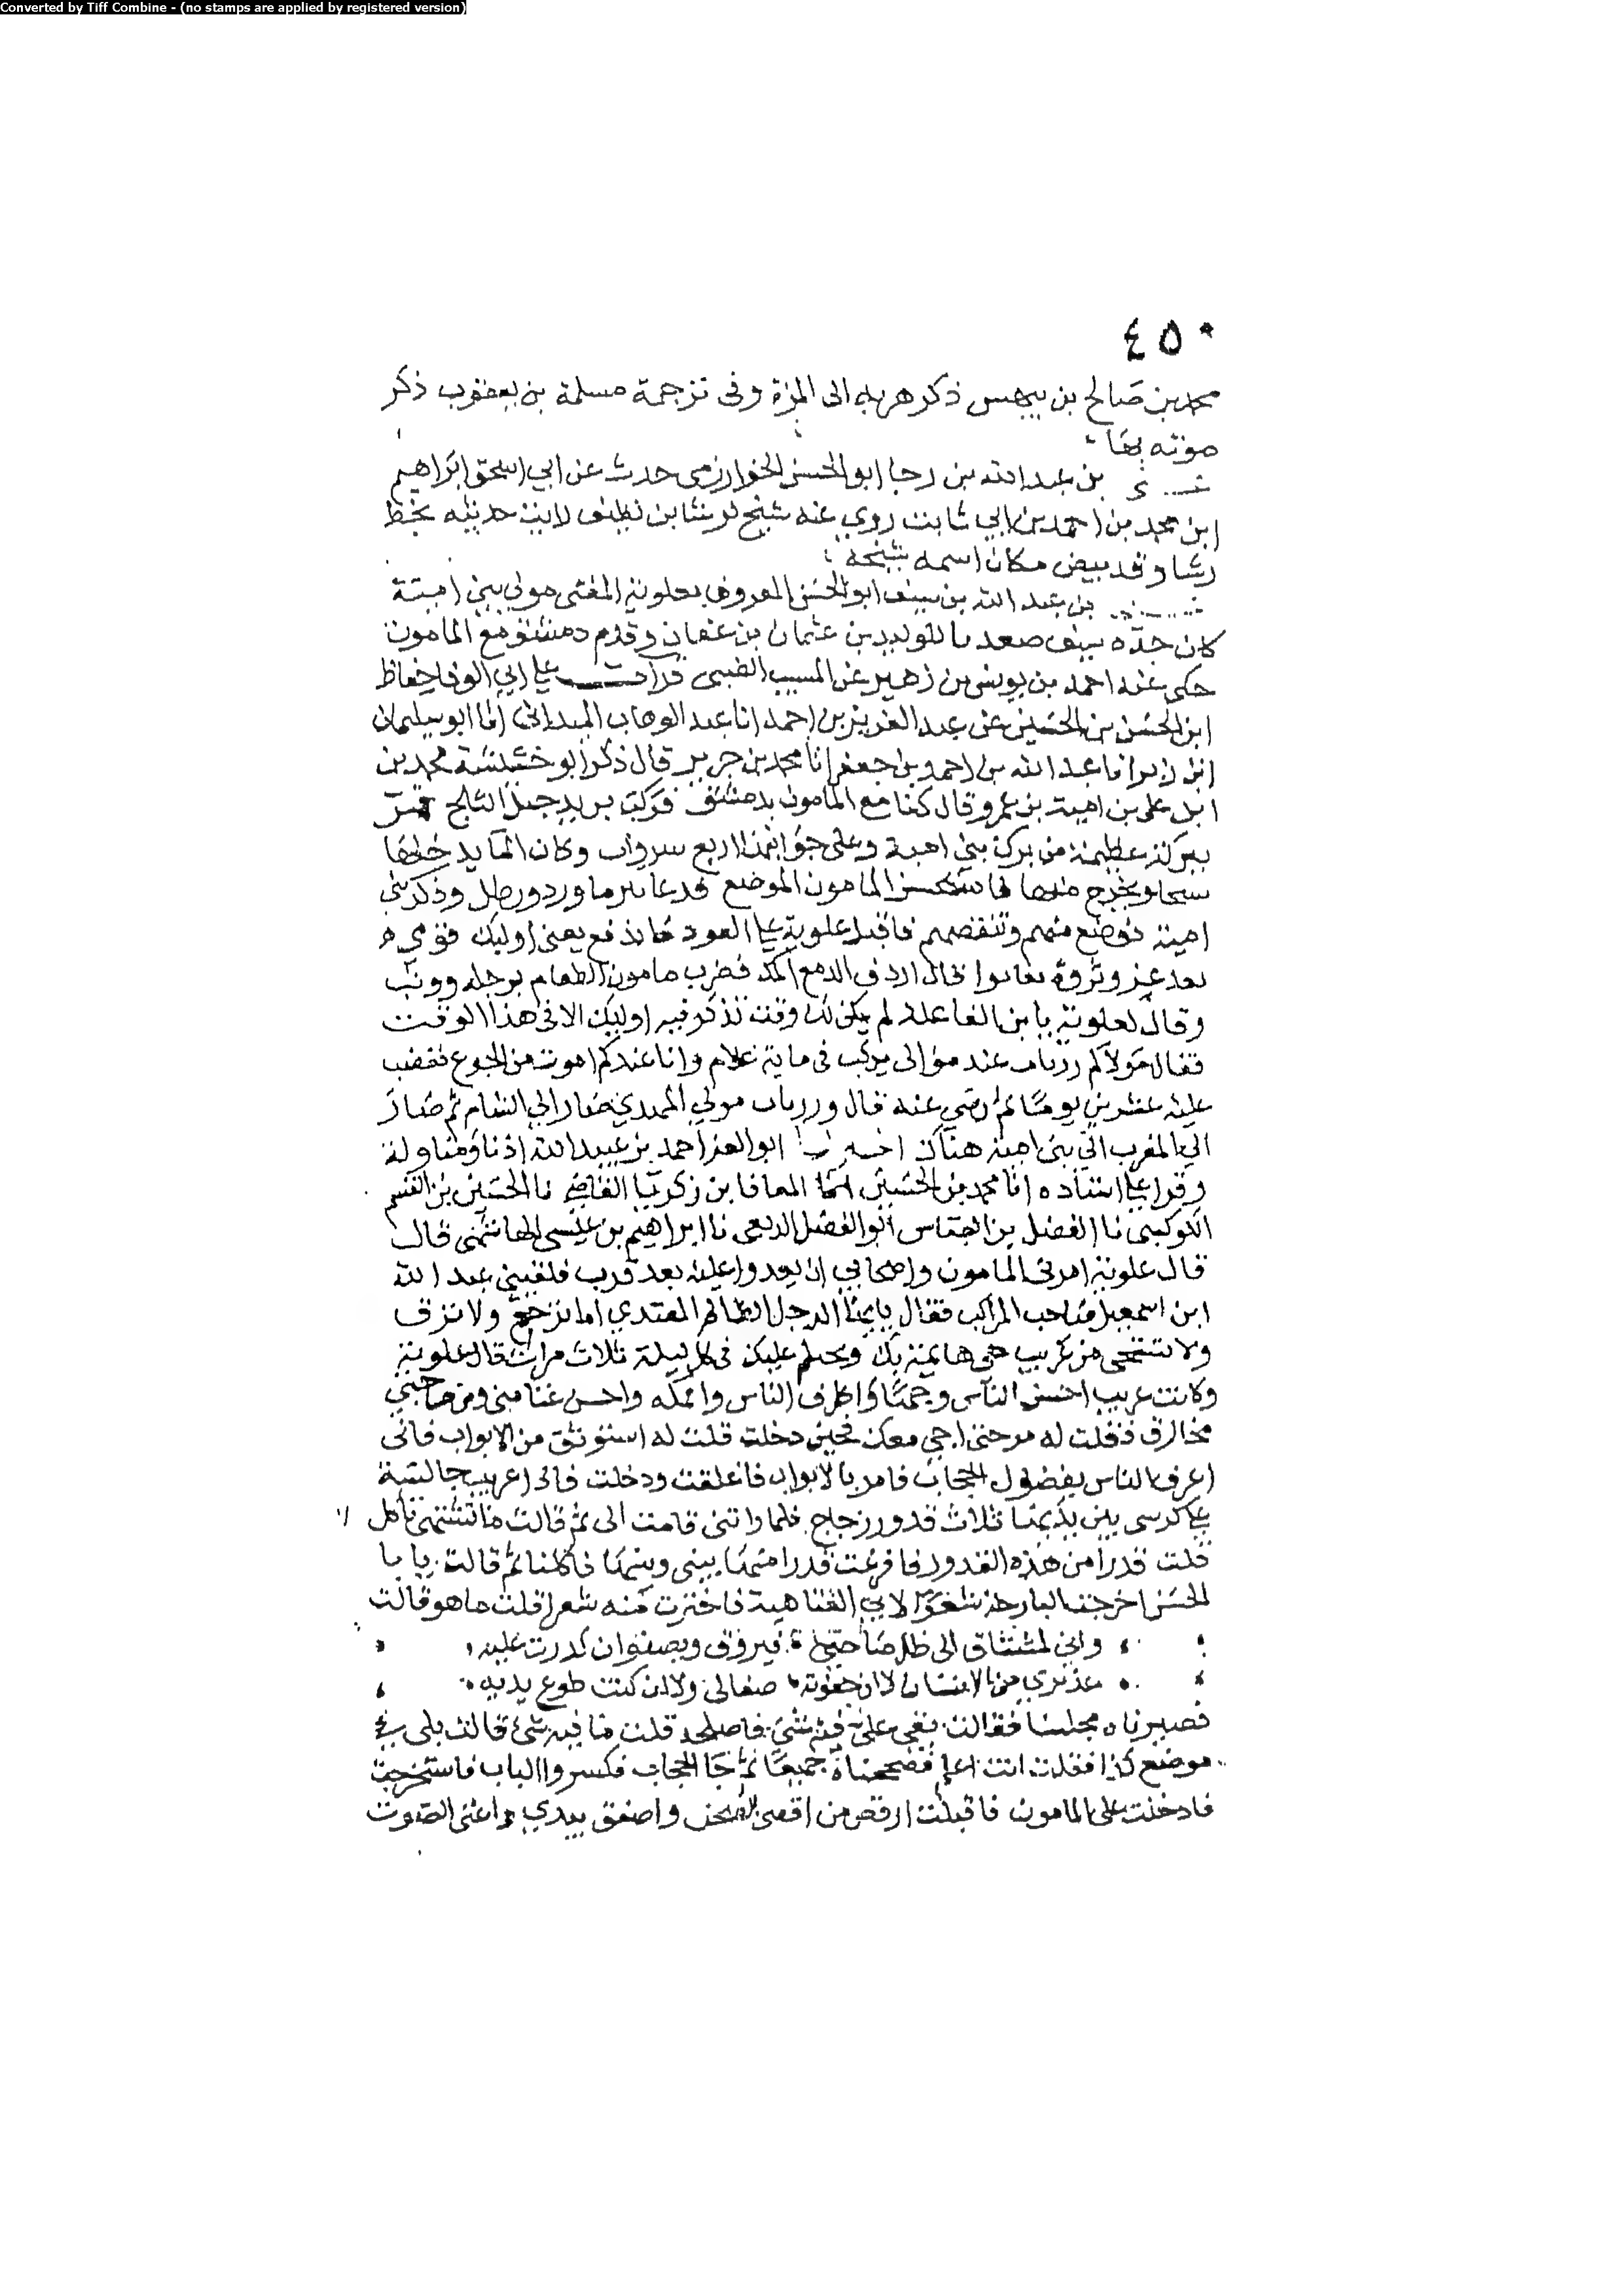 Converted by Tiff Combine - (no stamps are applied by registered version)
٤٥٠
محمد بن صالح بن بيهس ذكر هربه الى المزة وفى ترجمة مسلمة بن يعقوب ذكر
موته بها
بن عبد الله بن رجا ابو الحسن الخوارزمى حدث عن ابي اسحق ابراهيم
ابن محمد بن احمد بن ابي ثابت روي عنه شيخ لرشا بن نظيف لابيت حديثه بخط
رشا وقد بيض مكان اسمه شيخه
بن عبد الله بن سيف ابو الحسن المعروف بعلوية المغنى مولي بني امية
كان جده سيف صعد ما للوليد بن عثمان بن عفان وقدم دمشق مع المامون
حكى عنه احمد بن يونس بن زهير عن المسيب الضبى قرات على ابي الوفا حفاظ
ابن الحسن بن الحسين عن عبد العزيز بن احمد انا عبد الوهاب الميدانى انا ابو سليمان
ابن زبر انا عبد الله بن احمد بن جعفر انا محمد بن جرير قال ذكر ابو خشيشة محمد بن
على بن امية بن عمرو قال كنا مع المامون بدمشق فركب يريد جبل الثلج فمر
ببركة عظيمة من برك بني امية وعلى جوانبها اربع سروات وكان الما يدخلها
سيحا ويخرج منها فاستحسن المامون الموضع فدعا ببزماورد ورطل وذكر بني
امية فوضع منهم وتنقصهم فاقبل علوية على العود فاندفع يعنى اوليك قومي
بعد عز وثروة تفانوا فالا اذرف الدمع اكمدا فضرب مامون الطعام برجله ووثب
وقال لعلوية يا بن الفاعله لم يكن لك وقت تذكر فيه اوليك الا فى هذا الوقت
فقال مولاكم زرياب عند موالى يركب فى ماية غلام وانا عندكم اموت من الجوع فغضب
عليه عشرين يوما ثم رضي عنه قال وزرياب مولي المهدي صار الي الشام ثم صار
الي المغرب الي بني امية هناك ابو العز احمد بن عبيد الله اذنا ومناولة
وقرا علي اسناده انا محمد بن الحسين انا المعافا بن زكريا القاضي نا الحسين بن القسم
الكوكبى نا الفضل بن العباس ابو الفضل الربعى نا ابراهيم بن عيسى الهاشمى قال
قال علوية امرنى المامون واصحابي ان يغدوا عليه بعد قرب فلقيني عبد الله
ابن اسمعيل صاحب المراكب فقال يايها الرجل الظالم المعتدي اما ترحم ولا ترق
ولا تستحى من عريب هى هايمة بك ويحلم عليك فى كل ليلة ثلاث مرات قال علوية
وكانت عريب احسن الناس وجها واظرف الناس وامكه واحسن غنا منى ومن صاحبي
مخارق فقلت له مر حتى اجي معك فحين دخلت قلت له استوثق من الابواب فانى
اعرف الناس بفضول الحجاب فامر بالابواب فاغلقت ودخلت فاذا عريب جالسة
على كرسى بين يديها ثلاث قدور زجاج فلما راتنى قامت الى ثم قالت ما تشتهى تاكل
قلت قدرا من هذه القدور فافرغت قدرا منها بينى وبينها فاكلنا ثم قالت يا با
الحسن اخرجنا البارحة شعرا لابي العتاهية فاخترت منه شعرا قلت ما هو قالت
وانى لمشتاق الى ظل صاحب يروق ويصفو ان كدرت عليه
عذيري من الانسان لا ان جفوته صفا لى ولا ان كنت طوع يديه
فصيرناه مجلسنا فقالت بقى على فيه شيء فاصلحه قلت ما فيه شى قالت بلى في
موضع كذا فقلت انت اعلم فصححناه جميعا ثم جا الحجاب فكسروا الباب فاستخرجت
فادخلت على المامون فاقبلت ارقص من اقصى الصحن واصفق بيدي واغنى الصوت